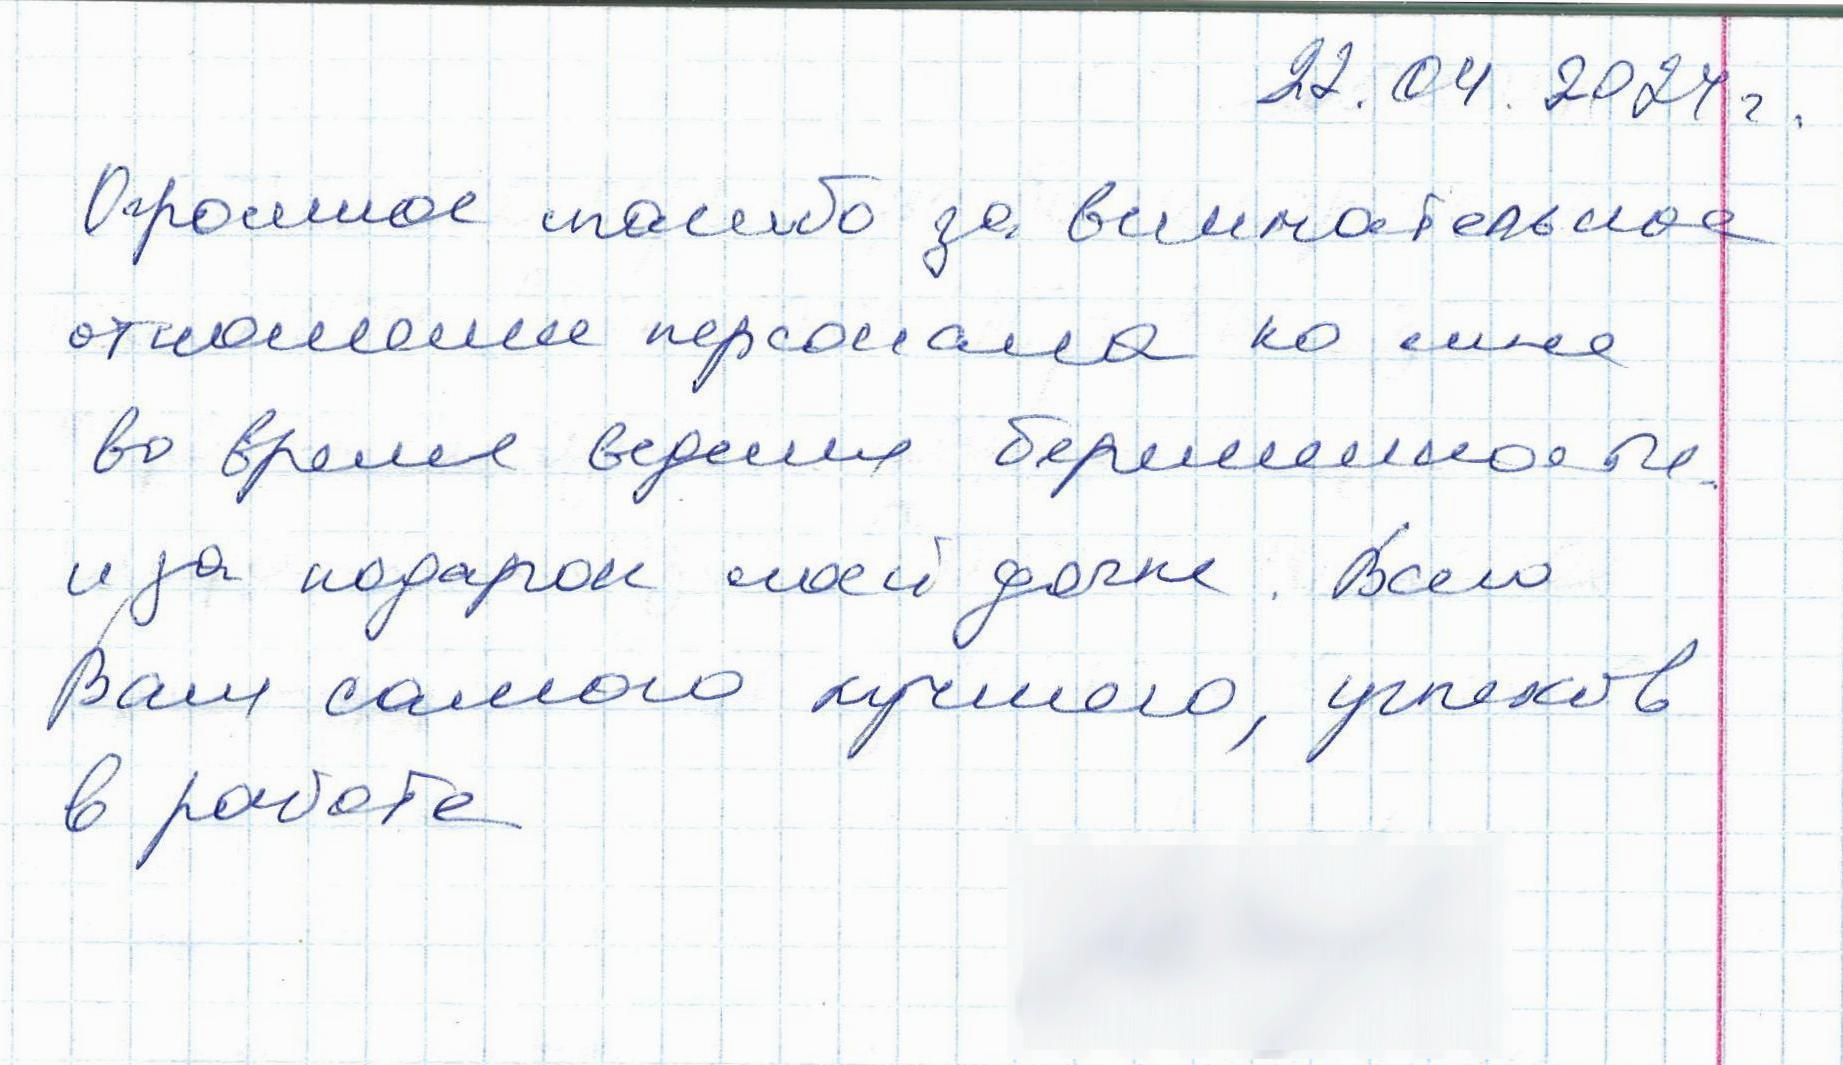 22.04.2024г.
Огромное спасибо за внимательное
отношение персонала ко мне
во время ведения беременности
и за подарок моей дочке. Всего
Вам самого лучшего, успехов
в работе